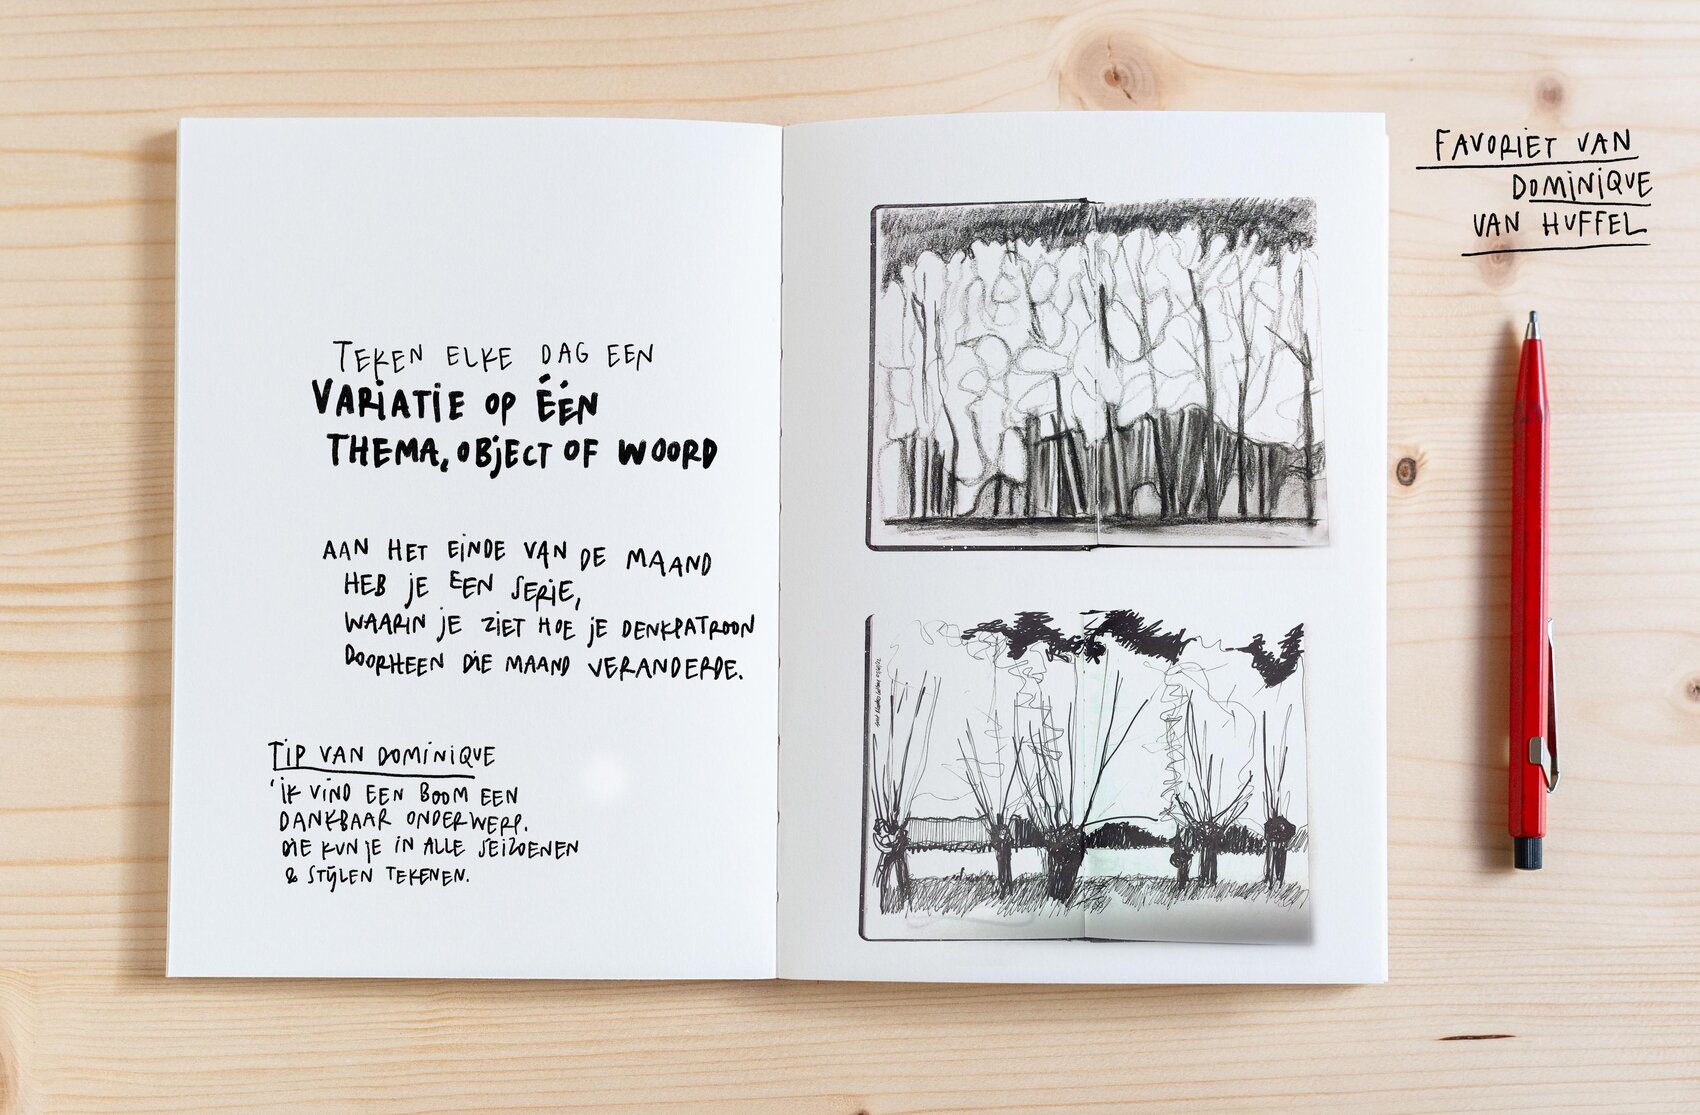 TEKEN ELKE DAG EEN
VARIATIE OP ÉÉN
THEMA, OBJECT OF WOORD
AAN HET EINDE VAN DE MAAND
HEB JE EEN SERIE,
WAARIN JE ZIET HOE JE DENKPATROON
DOORHEEN DIE MAAND VERANDERDE.
TIP VAN DOMINIQUE
'IK VIND EEN BOOM EEN
DANKBAAR ONDERWERP.
DIE KUN JE IN ALLE SEIZOENEN
& STIJLEN TEKENEN.
FAVORIET VAN
DOMINIQUE
VAN HUFFEL